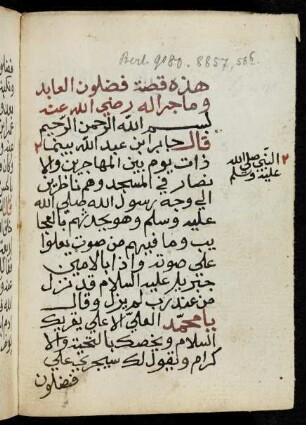 Berl. 9080. 8857, 56
هذه قصة فضلون العابد
وما جرا له رضي الله عنه
بسم الله الرحمن الرحيم
قال جابر ابن عبد الله بينما
ذات يوم بين المهاجرين والا
نصار في المسجد وهم ناظرين
الي وجه رسول الله صلي الله
عليه وسلم وهو يحدثهم بالعجا
يب وما فيهم من صوت يعلوا
علي صوته واذا بالامين
جبريل عليه السلام قد نزل
من عند رب لم يزل وقال
يا محمد العلي الاعلي يقريك
السلام ويخصك بالتحية والا
كرام ويقول لك سيجري علي
فضلون
٢ النبي صلي الله
عليه وسلم